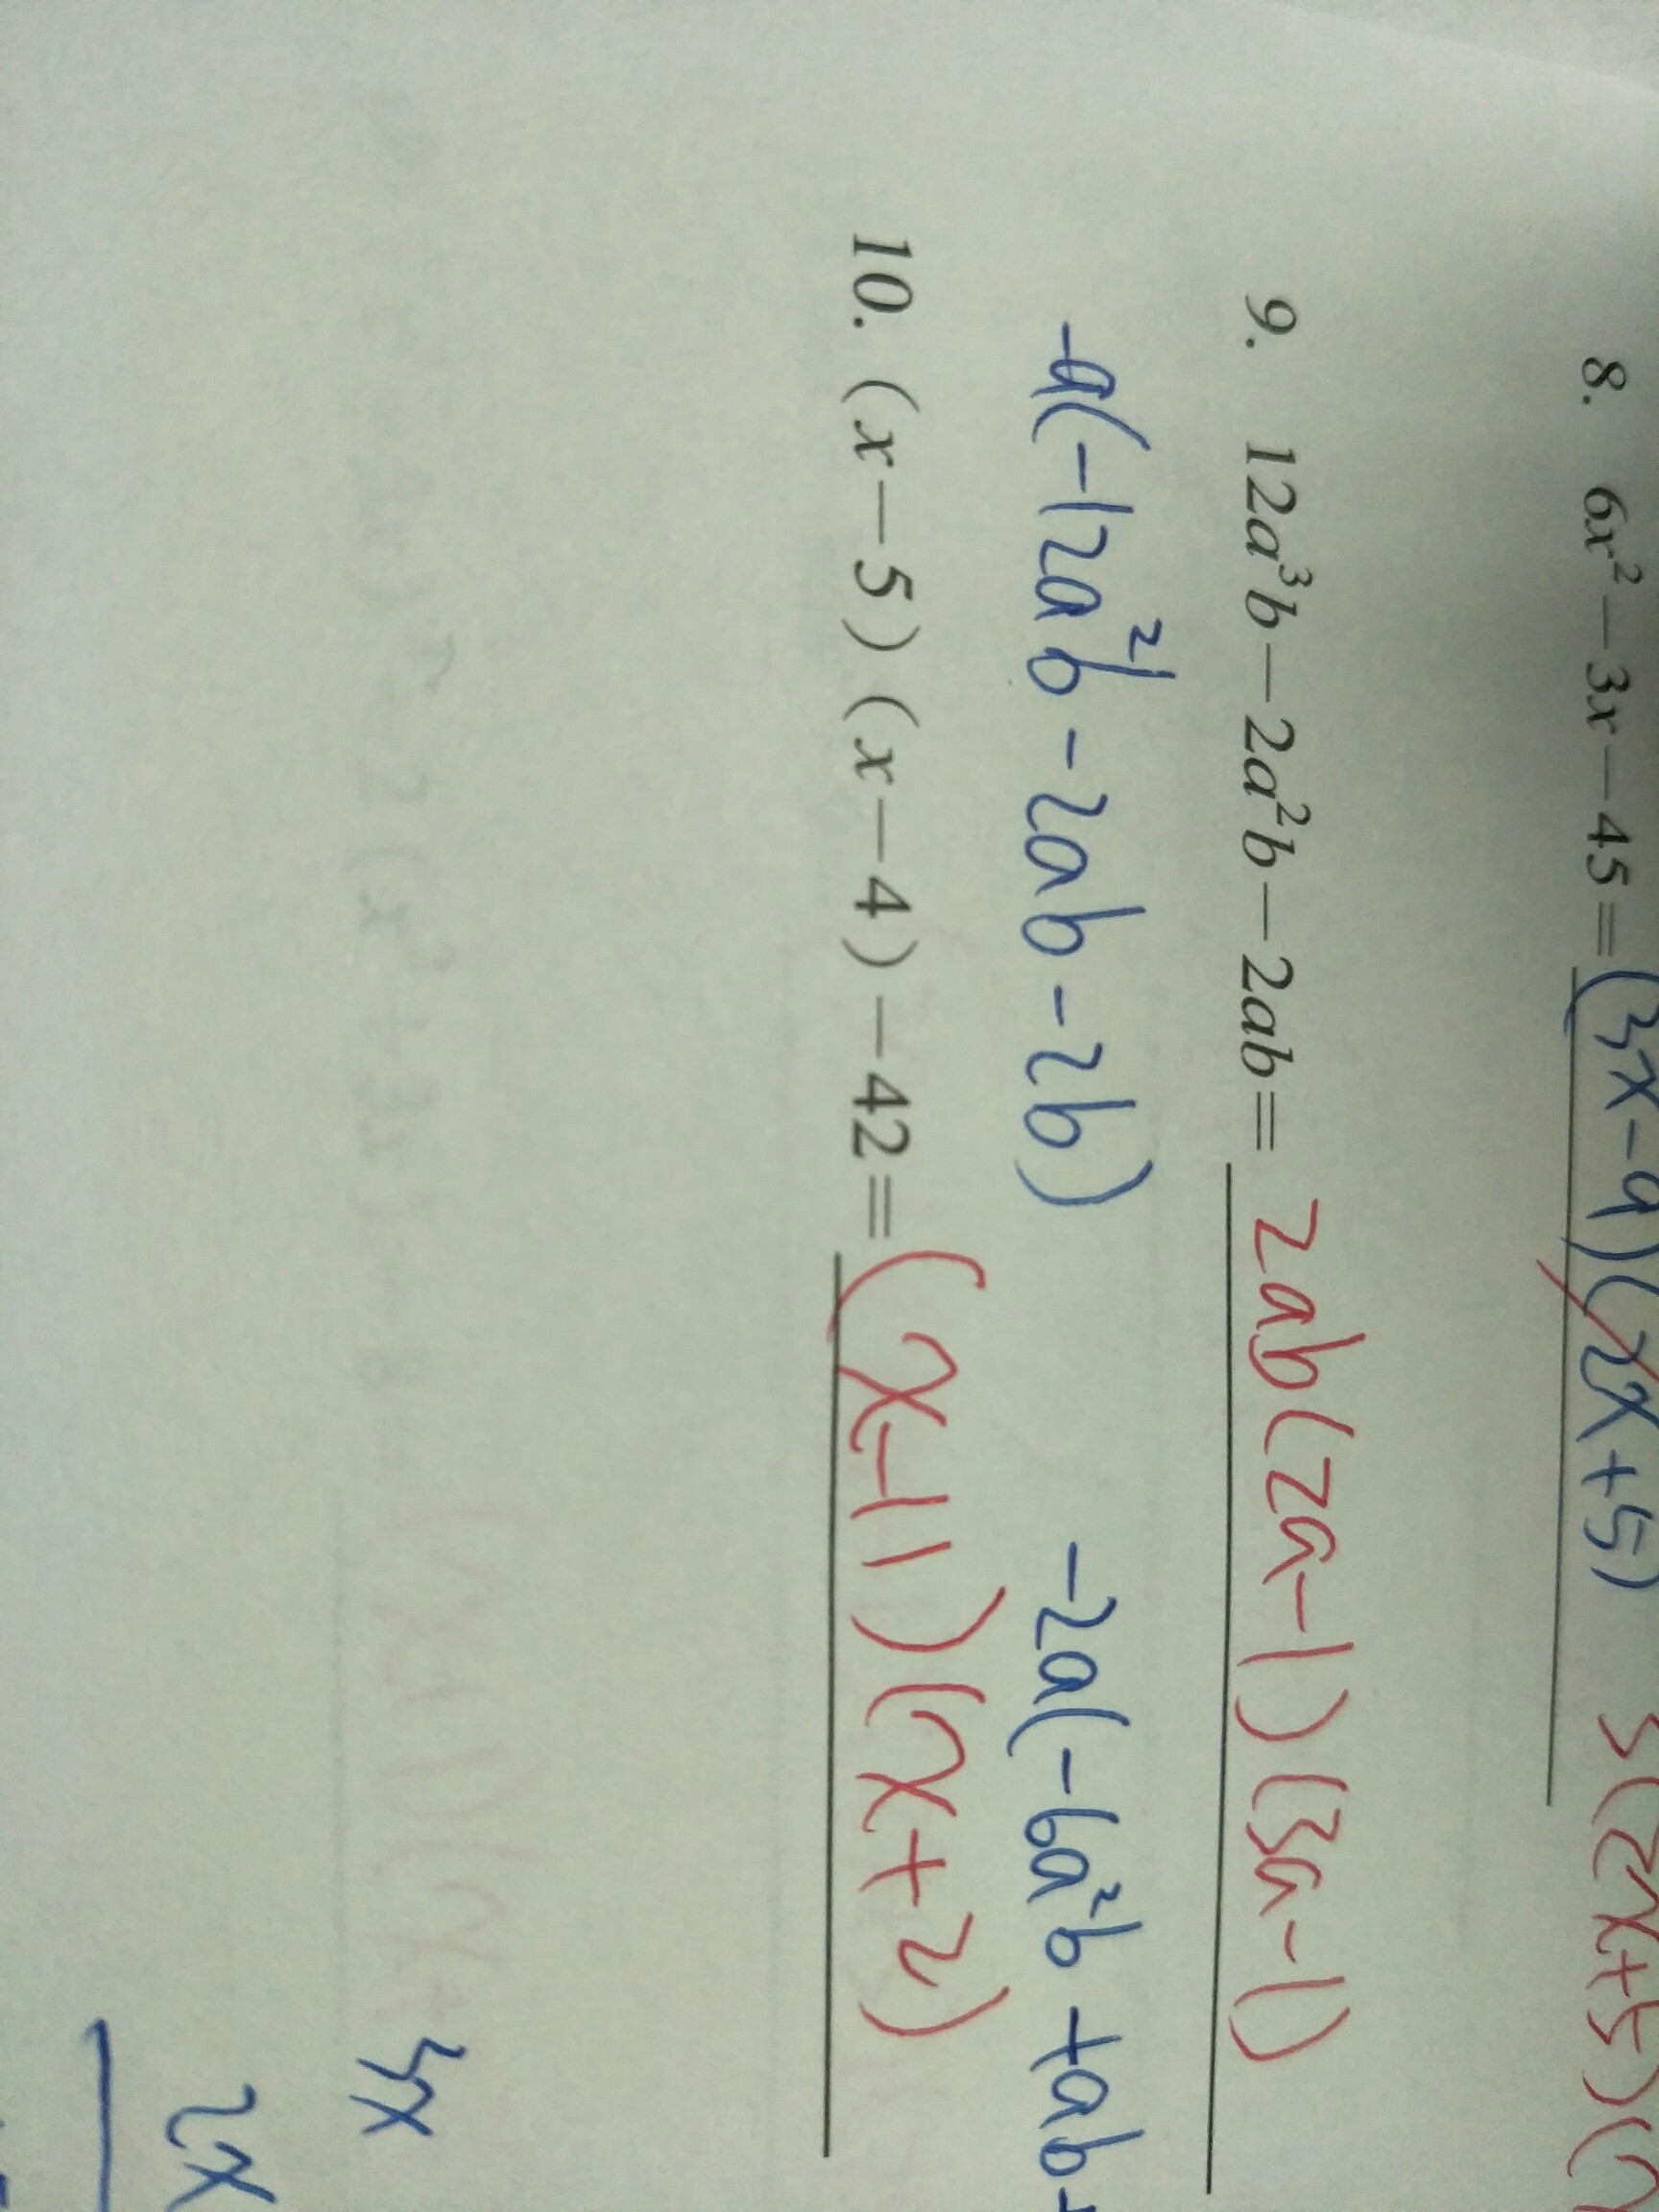 8. 6x²-3x-45=(3x-9)(2x+5) 3(2x+5)(
9. 12a³b-2a²b-2ab= 2ab(2a-1)(3a-1)
-a(-12a²b-2ab-2b) -2a(-6a²b+ab+
10. (x-5)(x-4)-42=(x-11)(x+2)
3x
2x